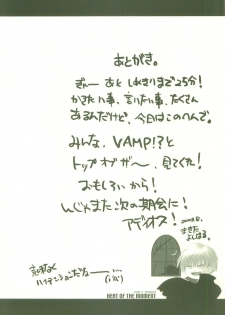 あとがき。
ぎゃー あと しめきりまで25分！
かきたい事、言いたい事、たくさん
あるんだけど、今日はこのへんで。
みんな、VAMP!?と
トップ オブ ザ 〜、見てくれ！
おもしろいから！
んじゃまた次の機会に！
アデイオス！
まきた
よしはる。
ハイテンションだなー…
BEAT OF THE MOMENT